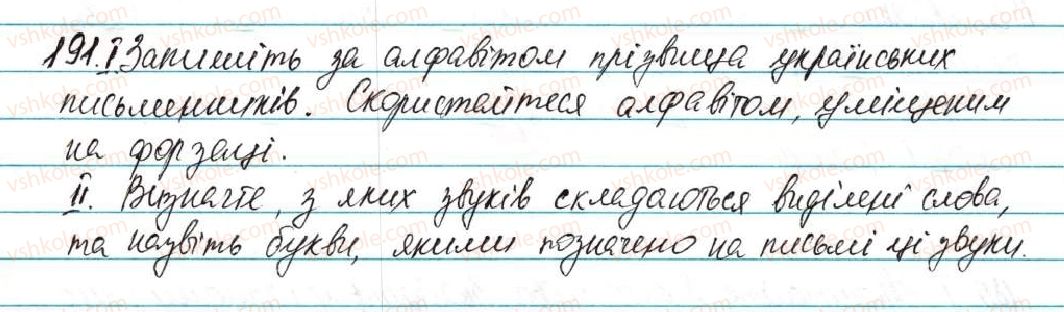 191. I Запишіть за алфавітом прізвища українських
письменників. Скористайтеся алфавітом, уміщеним
на форзаці.
II. Визначте, з яких звуків складаються виділені слова,
та назвіть букви, якими позначено на письмі ці звуки.